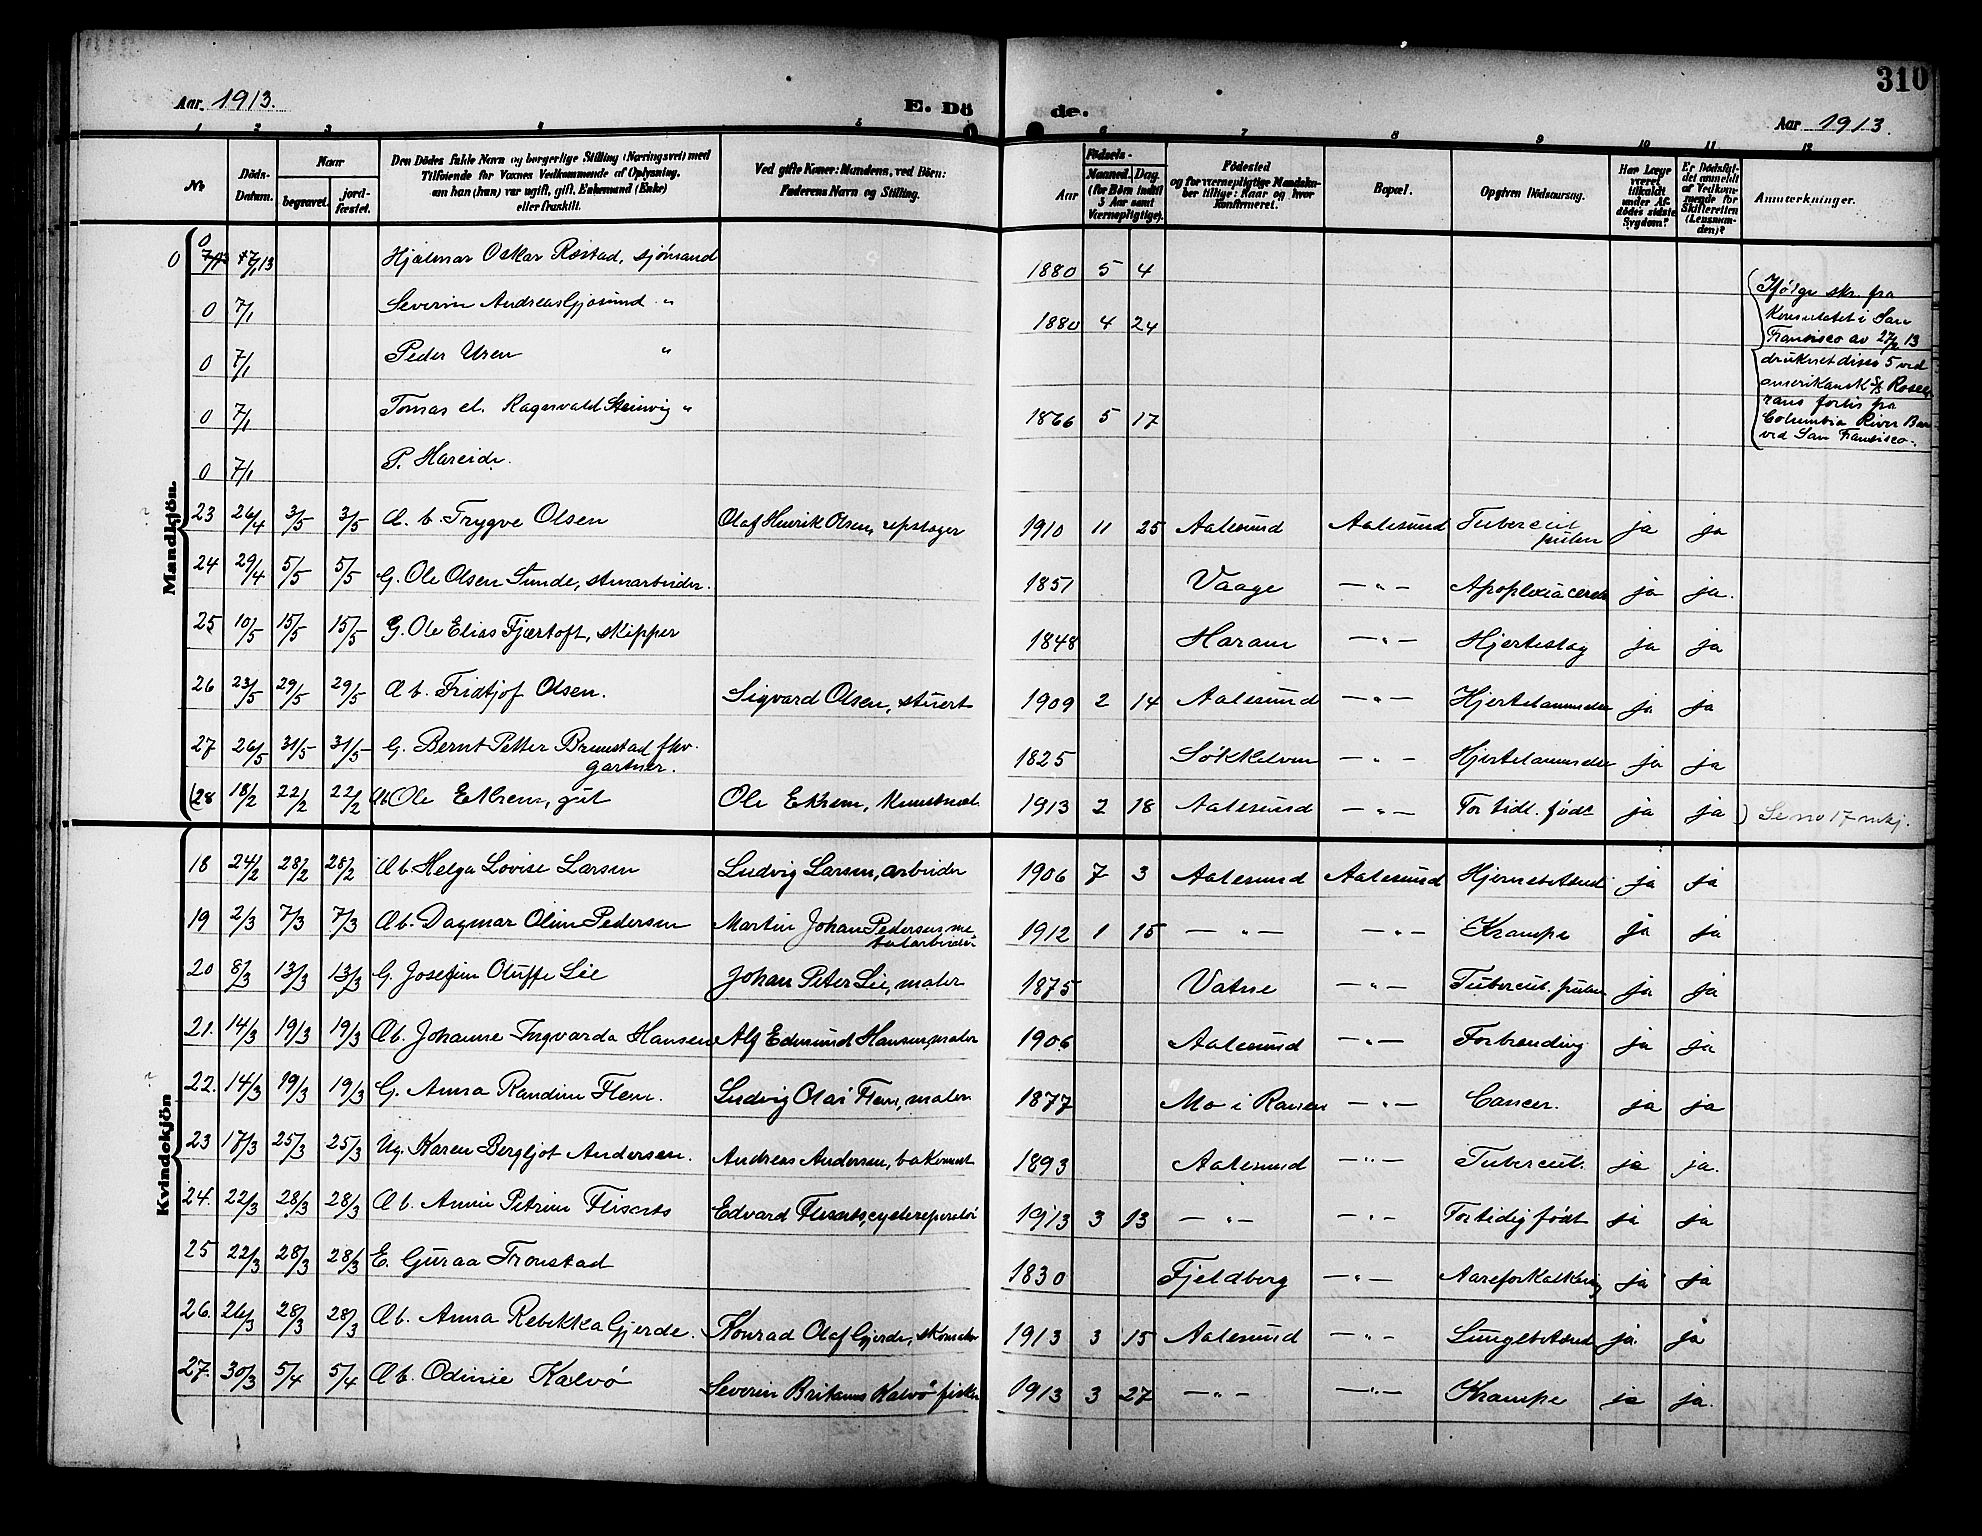 310
Aar 1913.
E. Dö de.
Aar 1913.
1 2 3 4 5 6 7 8 9 10 11 12
No
Döds-
Datum.
Naar
begravet.
jord-
fæstet.
Den Dødes fulde Navn og borgerlige Stilling (Næringsvei) med
Tilføiende for Voxnes Vedkommende af Oplysning,
om han (hun) var ugift, gift, Enkemand (Enke)
eller fraskilt.
Ved gifte Koner: Mandens, ved Börn:
Faderens Navn og Stilling.
Födsels-
Aar
Maaned. Dag.
(for Börn indtil
5 Aar samt
Værnepligtige).
Födested
og for værnepligtige Mandska-
ber tillige: Naar og hvor
konfirmeret.
Bopæl.
Opgiven Dödsaarsag.
Har Læge
været
tilkaldt
under Af-
dödes sidste
Sygdom?
Er Dödsfal-
det anmeldt
af Vedkom-
mende for
Skifteretten
(Lensman-
den)?
Anmærkninger.
Mandkjön.
0 7/1 13 Hjalmar Oskar Rostad, sjömand 1880 5 4
0 7/1 Severin Andreas Gjøsund " 1880 4 24
0 7/1 Peder Uren "
0 7/1 Tomas el. Ragnvald Steinvig " 1866 5 17
0 7/1 P. Hareide.
Ifølge skr. fra
Konsulatet i San
Fransisco av 27/2 13
druknet disse 5 ved
amerikansk S/S Rosec
rans forlis fra
Columbia River Bar
ved San Fransisco.
23 26/4 3/5 3/5 Æ. b. Trygve Olsen Olaf Henrik Olsen, opslager 1910 11 25 Aalesund Aalesund Tubercul. pulm ja ja
24 29/4 5/5 5/5 G. Ole Olsen Sunde, stenarbeider. 1851 Vaage — " — Apoplexia cereb ja ja.
25 10/5 15/5 15/5 G. Ole Elias Fjærtoft, skipper 1848 Haram — " — Hjerteslag ja ja
26 23/5 29/5 29/5 Æ b. Fridtjof Olsen. Sigvard Olsen, stuert 1909 2 14 Aalesund — " — Hjertelammelse ja ja
27 26/5 31/5 31/5 G. Bernt Petter Brunstad fhv. gartner. 1825 Søkkelven — " — Hjertelammelse ja ja
(28 18/2 22/2 22/2 Æb Ole Ekrem, gut Ole Ekrem, 1913 2 18 Aalesund — " — For tidl. født ja ja ) Se no 17 mkj.
Kvindekjön
18 24/2 28/2 28/2 Æ b. Helga Lovise Larsen Ludvig Larsen, arbeider 1906 7 3 Aalesund Aalesund Hjernebetænd ja ja
19 2/3 7/3 7/3 Æb. Dagmar Oline Pedersen Martin Johan Pedersen, me talarbeider 1912 1 15 — " — — " — Krampe ja ja
20 8/3 13/3 13/3 G. Josefine Oluffe Lie Johan Peter Lie, maler 1875 Vatne — " — Tubercul. pulm ja ja
21. 14/3 19/3 19/3 Æb. Johanne Ingvarda Hansen Alf Edmund Hansen, maler 1906 Aalesund — " — Forbrending ja ja
22. 14/3 19/3 19/3 G. Anna Randine Flem. Ludvig Olai Flem, maler 1877 Mo i Ranen — " — Cancer. ja ja
23 17/3 25/3 25/3 Ug. Karen Bergljot Andersen. Andreas Andersen, bakermest 1893 Aalesund — " — Tubercul. ja ja.
24. 22/3 28/3 28/3 Æ b. Annie Petrine Flisnes Edvard Flisnes, cyclereparatør 1913 3 13 — " — — " — For tidig født ja ja
25 22/3 28/3 28/3 E. Guraa Tronstad 1830 Fjeldberg — " — Aareforkalkning ja ja
26. 26/3 28/3 28/3 Æb. Anna Rebekka Gjerde. Konrad Olaf Gjerde, skomaker 1913 3 15 Aalesund — " — Lungebetænd ja. ja
27. 30/3 5/4 5/4 Æ b. Odinie Kalvø Severin Britanus Kalvø fisker 1913 3 27 — " — — " — Krampe ja ja.